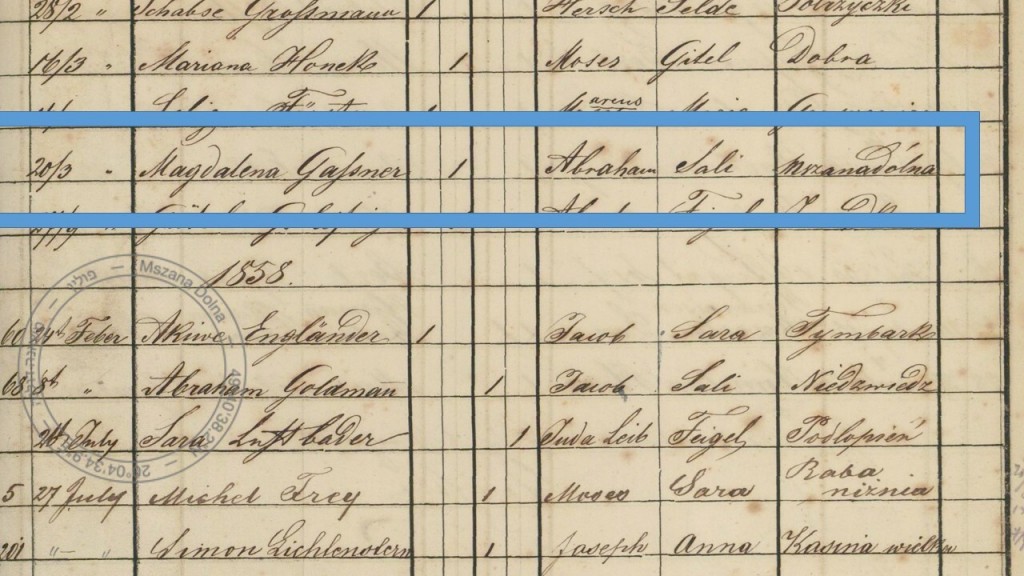 28/2 " Schabse Grossmann 1 Hersch Selde
16/3 " Mariana Honek 1 Moses Gitel Dobra
20/3 " Magdalena Gaſsner 1 Abraham Sali Mszana Dólna
1858.
24t Feber Akiwe Engländer 1 Jacob Sara Tymbark
68 8t " Abraham Goldman̄ 1 Jacob Sali Niedzwiedz
July Sara Luftbader 1 Juda Leib Feigel Podlopień
5 27 July Michel Frey 1 Moses Sara Raba
niznia
201 "- " Simon Lichtenstern 1 Joseph Anna Kasina wielka
Mszana Dolna
פולין